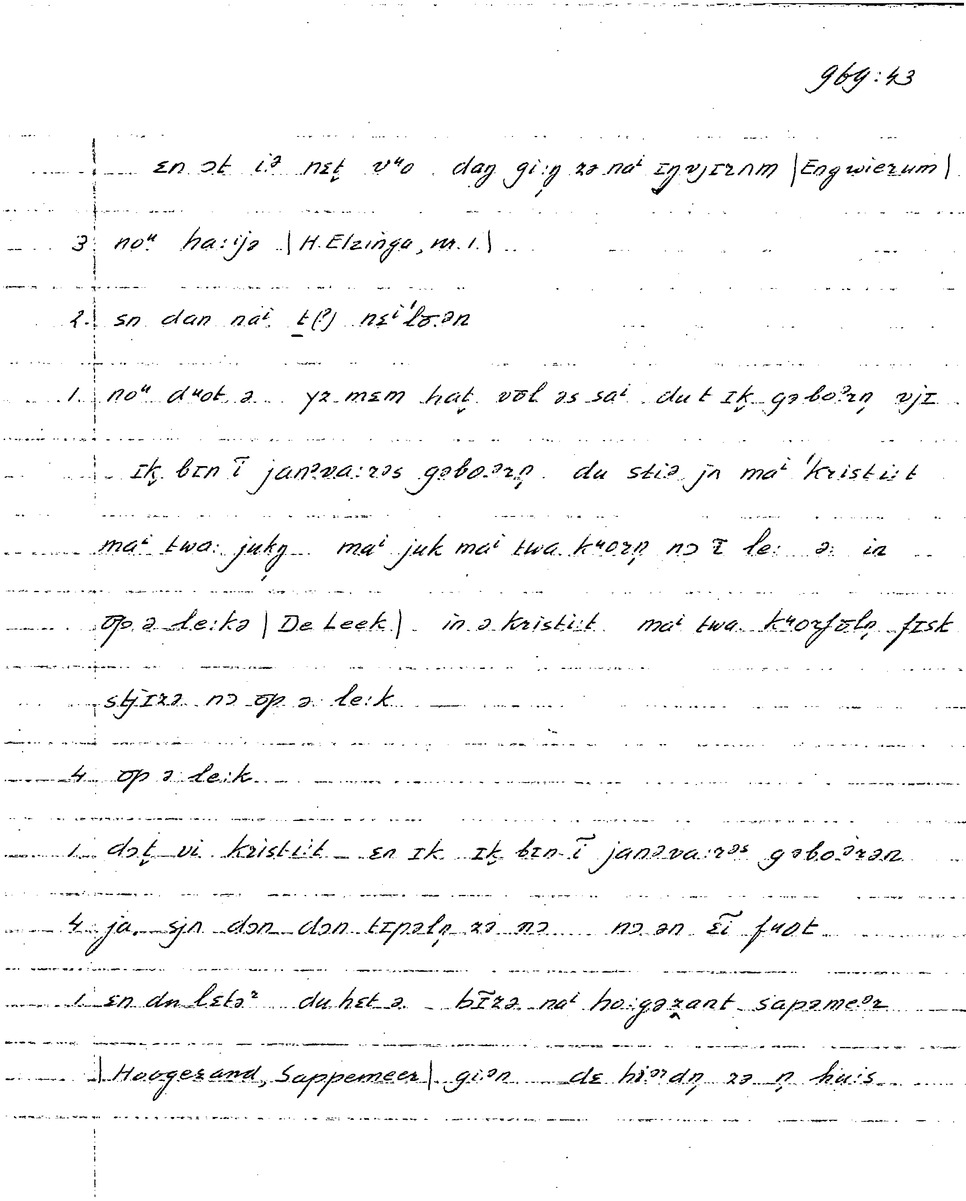 g69:43
ɛn ɔt iə nɛt̯ vᵘo . daŋ gi:ŋ̩ zə naⁱ ɪŋvjɪrʌm |Engwierum|
3 noᵘ ha:ijə |H.Elzinga, nr.1.|
2. ɛn dan naⁱ t̲(?) nɛiˈlō.ən
1. noᵘ dᵘot ə yz mɛm hat̯ vōl əs saⁱ du t ɪk̯ gəboᵊrn̩ vjɪ
ɪk̯ bɪn ī janəva:rəs gəbo.ərn̩ . du stiə jn maⁱ ˈkristi:t
maⁱ twa: jukŋ̩ maⁱ juk maⁱ twa kᵘorn̩ nɔ ī le: ə: in
ōp ə le:kə |De Leek| . in ə kristi:t maⁱ twa. kᵘorfōln̩ fɪsk
stjɪrə nɔ ōp ə le:k
4 ōp ə le:k
1. dɔt̯ vi kristi:t ɛn ɪk ɪk̯ bɪn ī janəva:rᵊs gəboᵊrən
4 ja. sjn dɔn dɔn tɪpəln̩ zə nɔ nɔ ən ɛ̄ī fᵘot
1. ɛn dn lɛtəʳ du hɛt ə bīrə naⁱ ho:gəzant sapəmeᵊr
|Hoogezand, Sappemeer| giən dɛ hiᵊrdn̩ zə n̩ hu:s